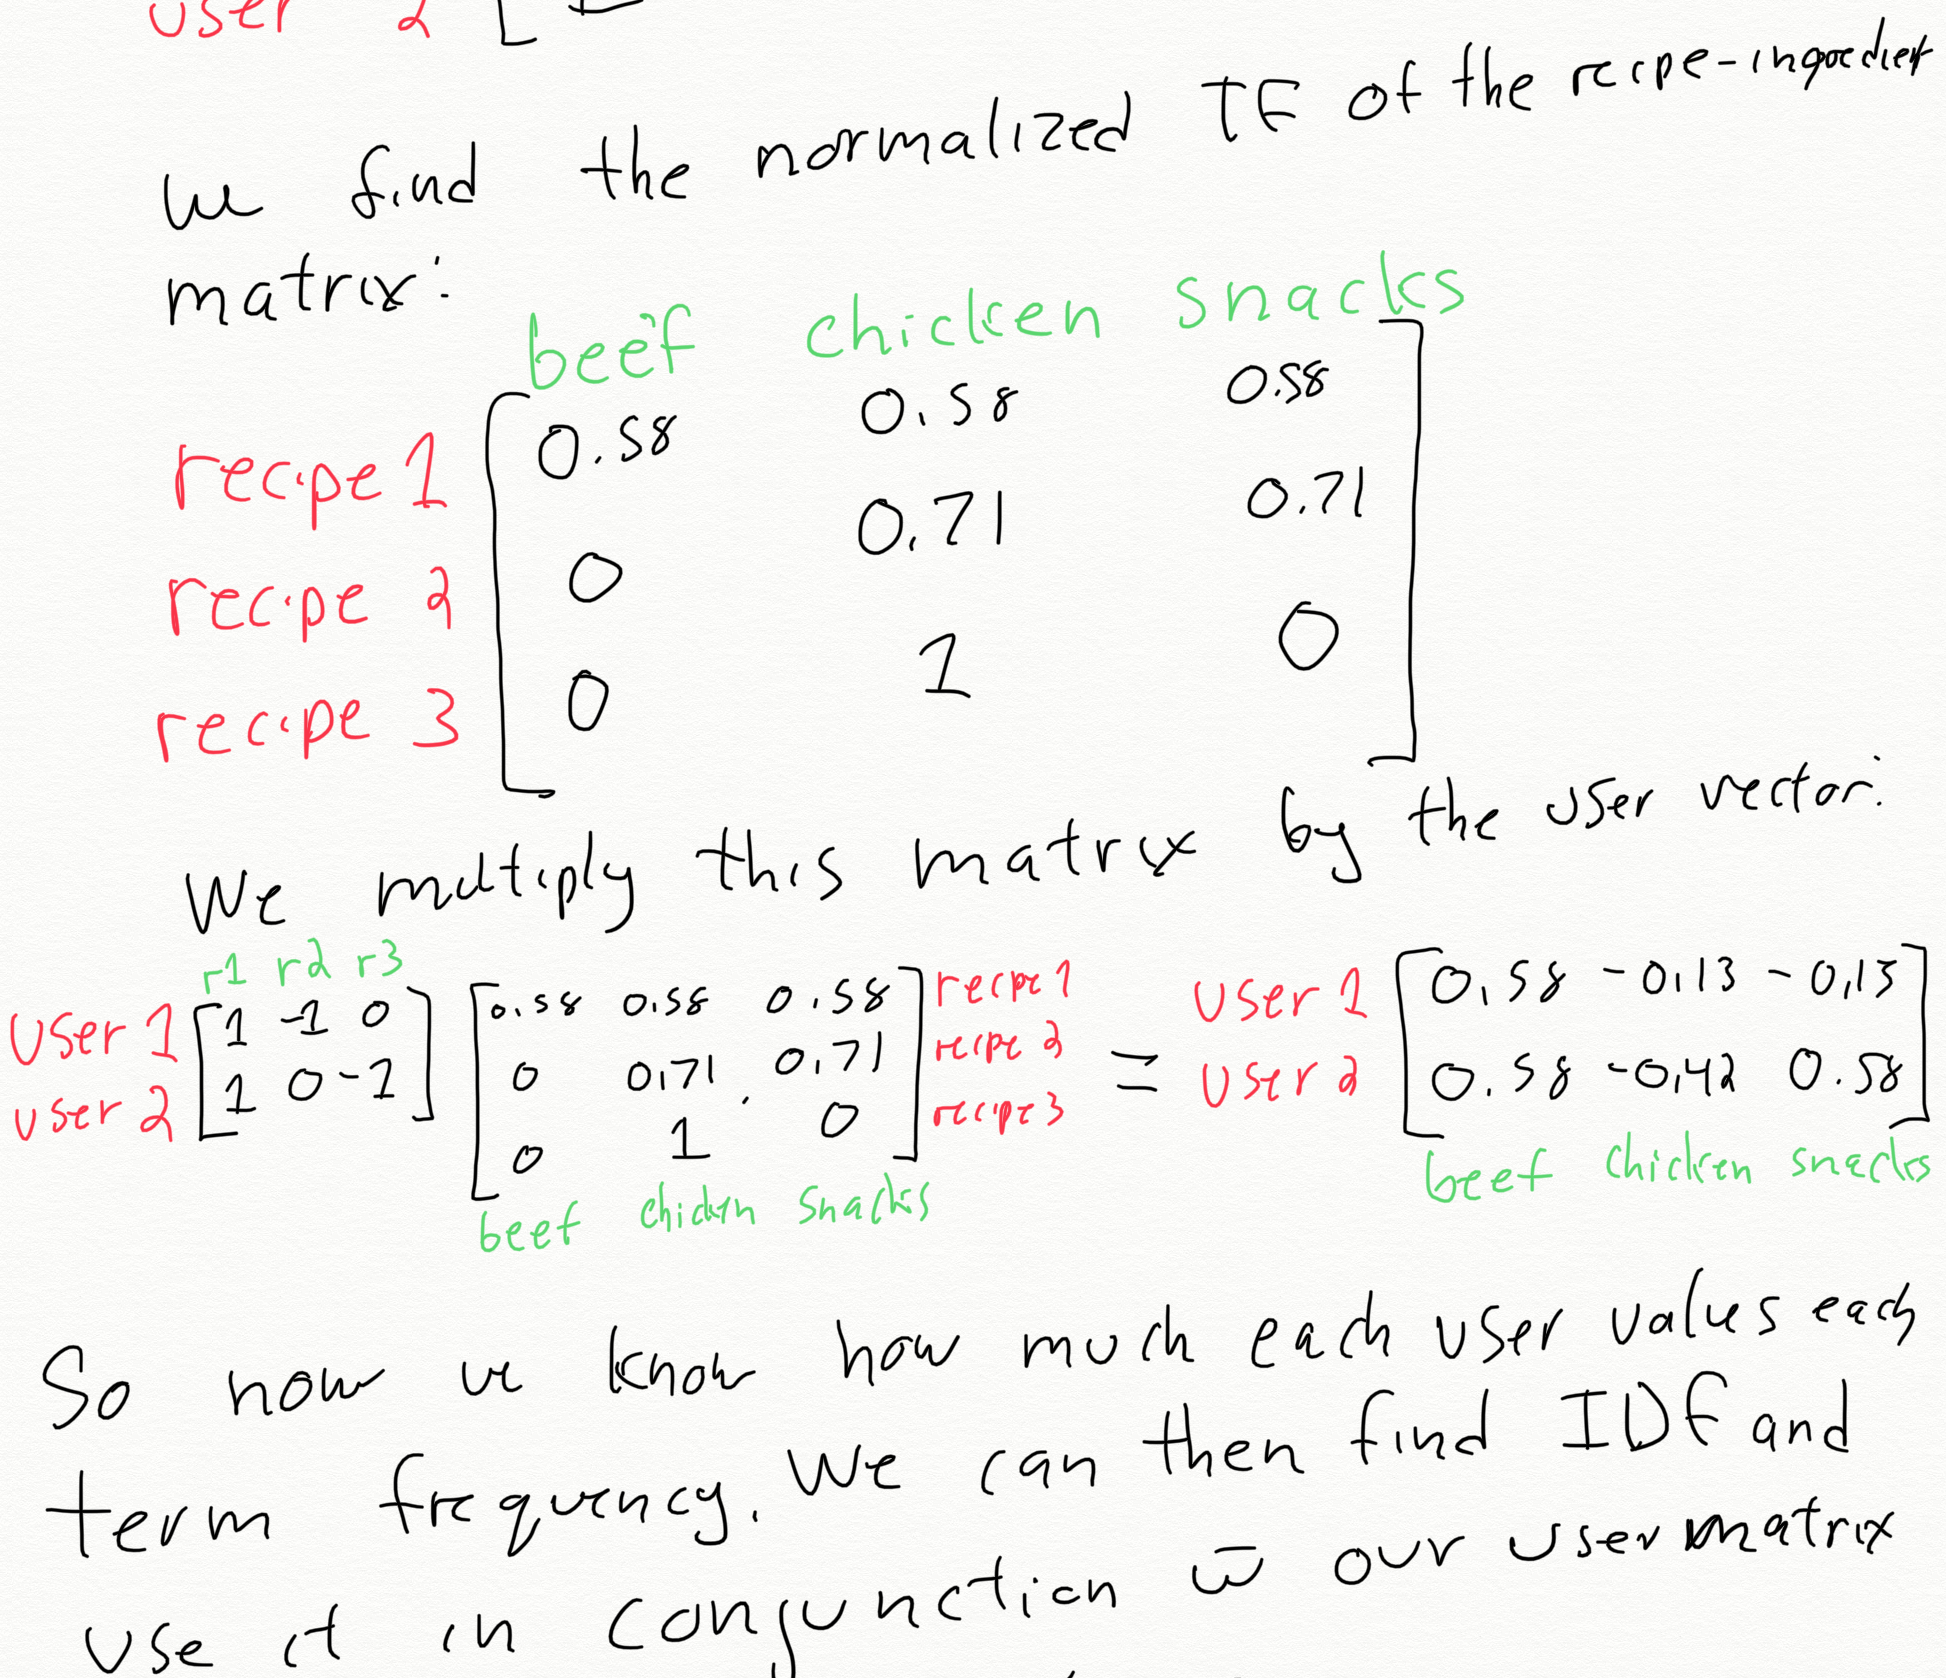 user 2
we find the normalized TF of the recipe-ingredient
matrix:
beef chicken snacks
recipe 1 0.58 0.58 0.58
recipe 2 0 0.71 0.71
recipe 3 0 1 0
We multiply this matrix by the user vector:
r1 r2 r3
user 1 1 -1 0 0.58 0.58 0.58 recipe 1 = user 1 0.58 -0.13 -0.13
user 2 1 0 -1 0 0.71 0.71 recipe 2 user 2 0.58 -0.42 0.58
0 1 0 recipe 3
beef chicken snacks beef chicken snacks
So now we know how much each user values each
term frequency. We can then find IDF and
use it in conjunction w̅ our user matrix